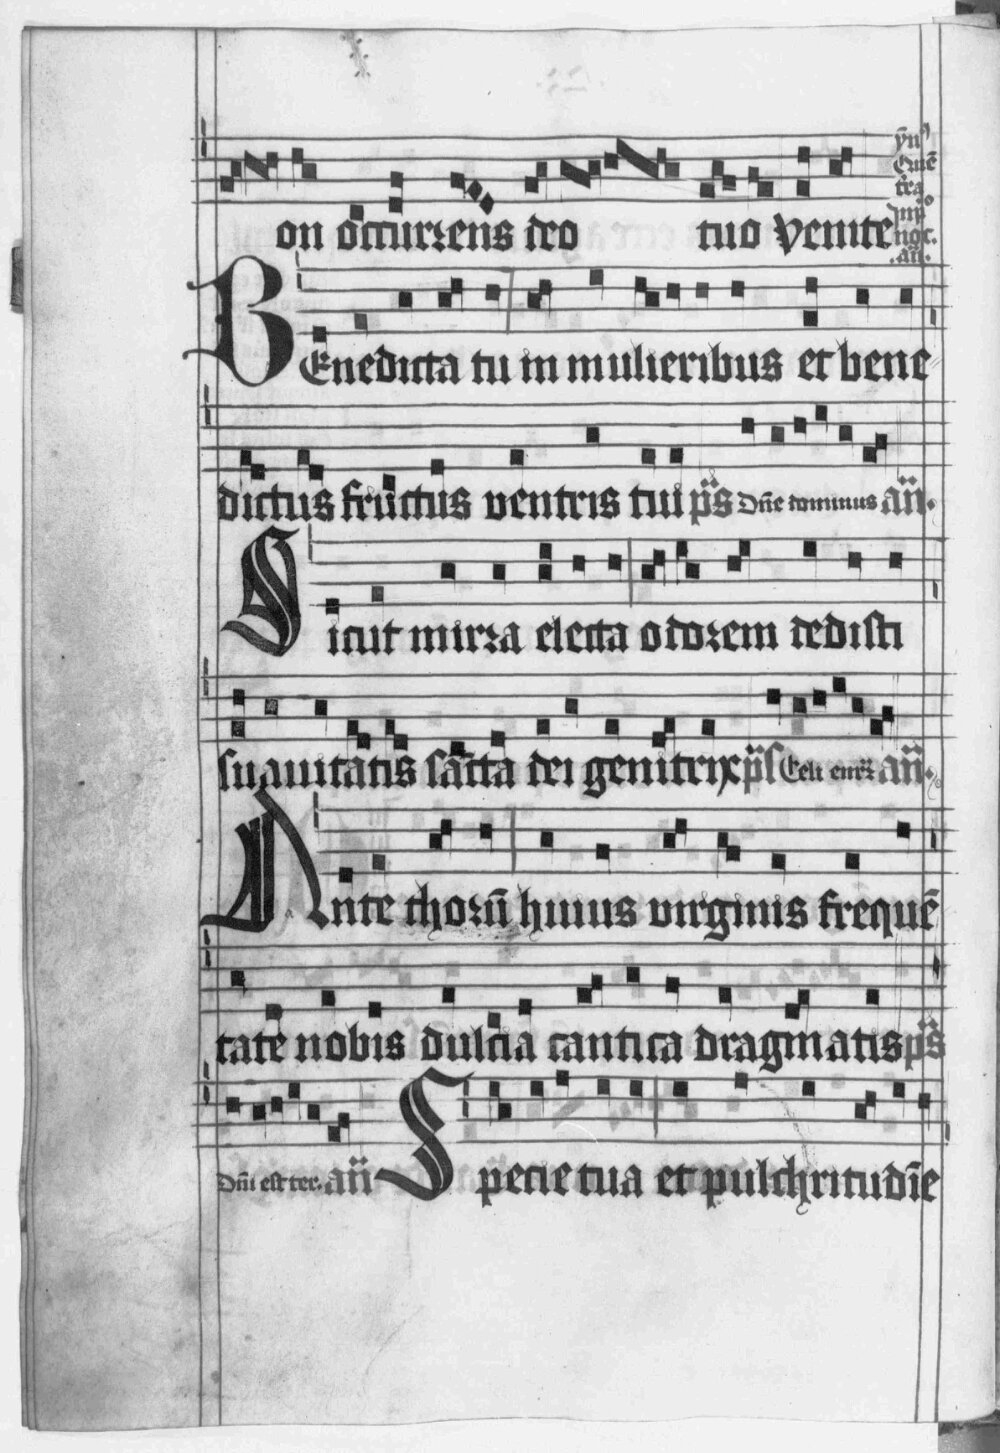 on occurrens deo tuo Venite
ÿn᷒
Quē
t̄ra
Jn p̊
noc.
.añ.
BEnedicta tu in mulieribus et bene
dictus fructus ventris tui p̄s Dñe dominus añ.
Sicut mirra electa odorem dedisti
suauitatis sācta dei genitrix p̄s Celi enrr̄ añ.
Ante thorū huius virginis frequē
tate nobis dulcia cantica dragmatis p̄s
Dñi est ter. añ Specie tua et pulchritudīe